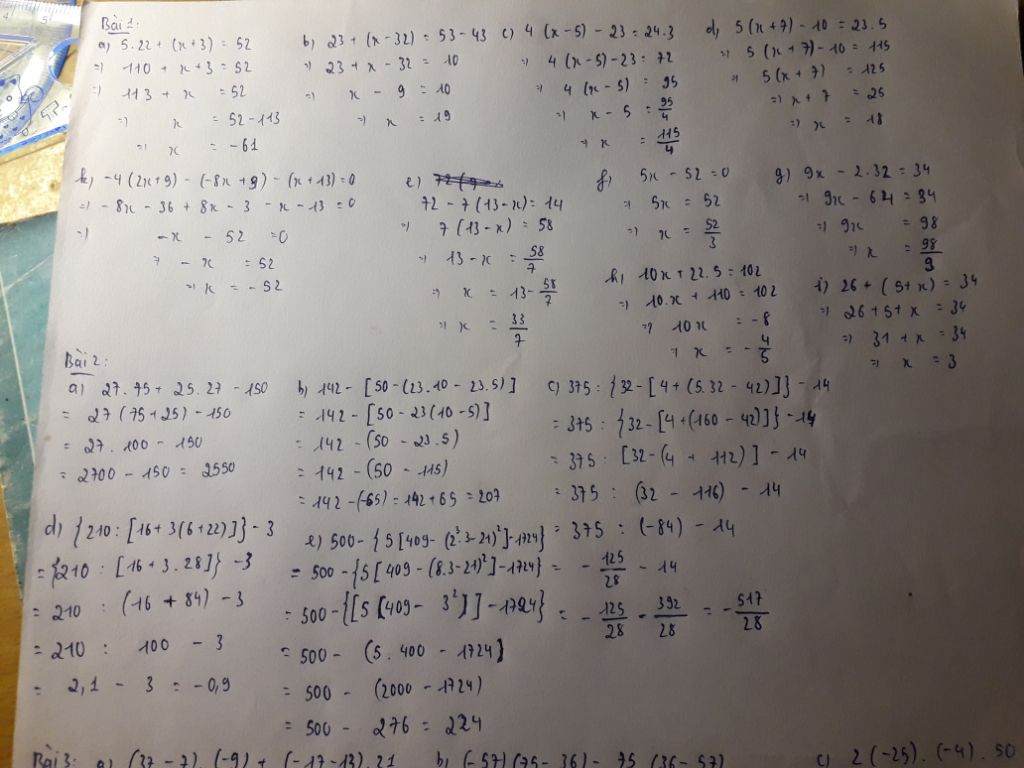 Bài 1:
a) 5.22 + (x+3) = 52
=> 110 + x + 3 = 52
=> 113 + x = 52
=> x = 52 - 113
=> x = -61
b) 23 + (x - 32) = 53 - 43
=> 23 + x - 32 = 10
=> x - 9 = 10
=> x = 19
c) 4 (x-5) - 23 = 24.3
=> 4(x-5) - 23 = 72
=> 4(x-5) = 95
=> x - 5 = 95/4
=> x = 115/4
d) 5(x+7) - 10 = 23.5
=> 5(x+7) - 10 = 115
=> 5(x+7) = 125
=> x + 7 = 25
=> x = 18
k) -4(2x+9) - (-8x+9) - (x+13) = 0
=> -8x - 36 + 8x - 3 - x - 13 = 0
=> -x - 52 = 0
-x = 52
=> x = -52
e)
72 - 7(13-x) = 14
=> 7(13-x) = 58
=> 13 - x = 58/7
=> x = 13 - 58/7
=> x = 33/7
f) 5x - 52 = 0
=> 5x = 52
=> x = 52/3
g) 9x - 2.32 = 34
=> 9x - 64 = 34
=> 9x = 98
=> x = 98/9
h) 10x + 22.5 = 102
=> 10.x + 110 = 102
=> 10x = -8
=> x = -4/5
i) 26 + (5+x) = 34
=> 26 + 5 + x = 34
=> 31 + x = 34
=> x = 3
Bài 2:
a) 27.75 + 25.27 - 150
= 27(75+25) - 150
= 27.100 - 150
= 2700 - 150 = 2550
b) 142 - [50 - (23.10 - 23.5)]
= 142 - [50 - 23(10-5)]
= 142 - (50 - 23.5)
= 142 - (50 - 115)
= 142 - (-65) = 142 + 65 = 207
c) 375 : {32 - [4 + (5.32 - 42)]} - 14
= 375 : {32 - [4 + (160 - 42)]} - 14
= 375 : [32 - (4 + 112)] - 14
= 375 : (32 - 116) - 14
= 375 : (-84) - 14
= - 125/28 - 14
= - 125/28 - 392/28 = - 517/28
d) {210 : [16 + 3(6+22)]} - 3
= {210 : [16 + 3.28]} - 3
= 210 : (16 + 84) - 3
= 210 : 100 - 3
= 2,1 - 3 = -0,9
e) 500 - {5[409 - (2³.3 - 21)²] - 1724}
= 500 - {5[409 - (8.3 - 21)²] - 1724}
= 500 - {[5(409 - 3²)] - 1724}
= 500 - (5.400 - 1724)
= 500 - (2000 - 1724)
= 500 - 276 = 224
Bài 3: a) (37 - 7).(-9) + (-17 - 13).21
b) (-57)(75 - 36) - 75 (36 - 57)
c) 2(-25).(-4).50